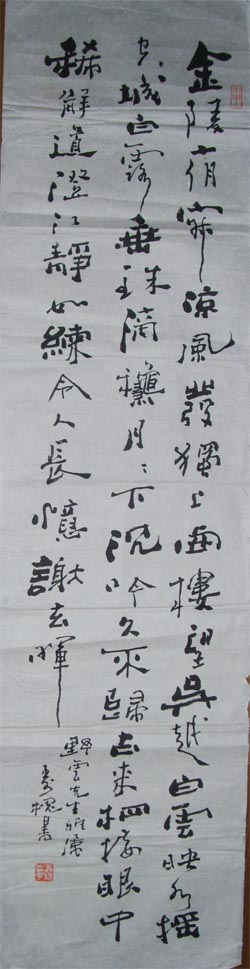 金陵夜寂涼風發獨上西樓望吳越白雲映水搖
空城白露垂珠滴龝月〻下沉吟久不歸古來相接眼中
稀解道澄江靜如練令人長憶謝玄暉
野雲先生雅屬
槐書